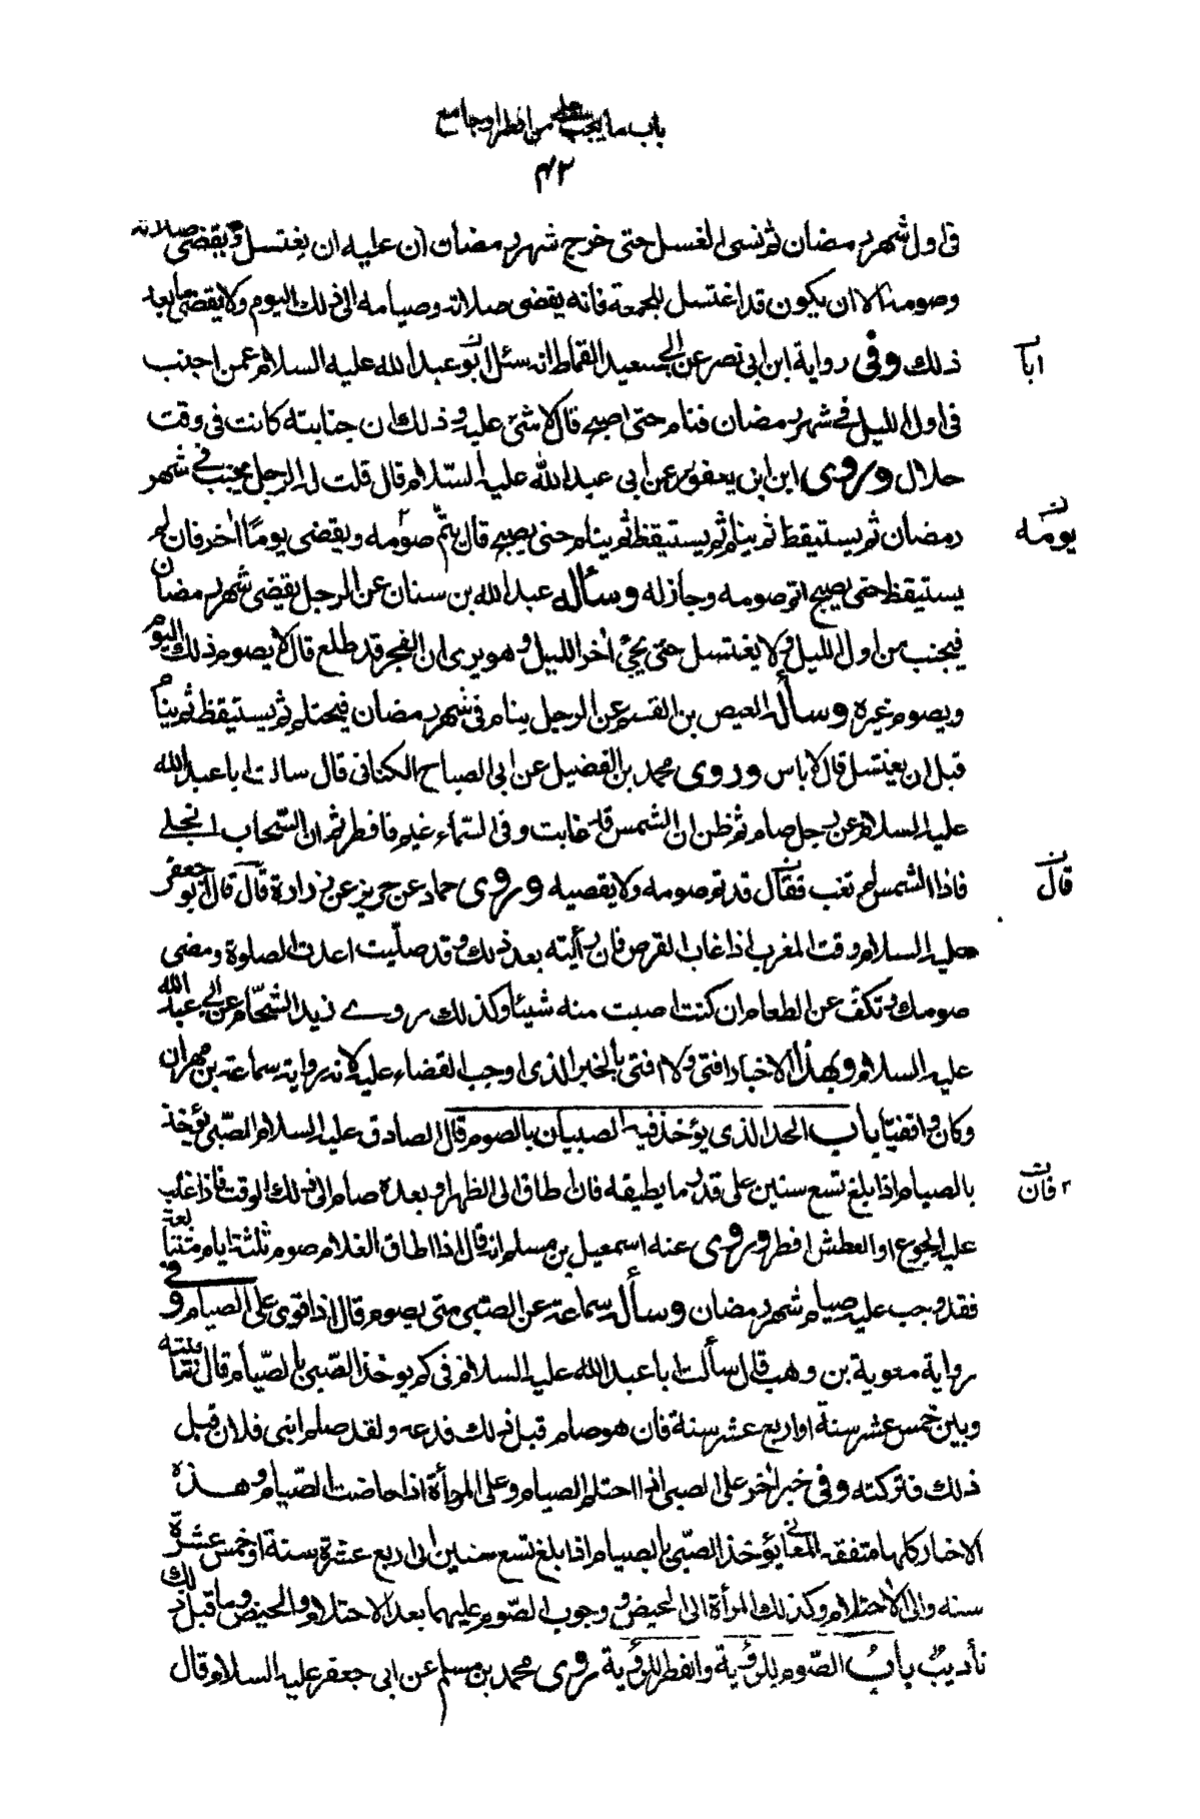 باب ما يجب على من افطر او جامع
٤٣
فى اول شهر رمضان ثم نسى الغسل حتى خرج شهر رمضان ان عليه ان يغتسل ويقضى صلاته
وصومه الا ان يكون قد اغتسل للجمعة فانه يقضى صلاته وصيامه الى ذلك اليوم ولا يقضى ما بعد
ذلك وفى رواية ابن ابى نصر عن ابى سعيد القماط انه سئل ابو عبد الله عليه السلام عمن اجنب
ابا
فى اول الليل فى شهر رمضان فنام حتى اصبح قال لا شئ عليه وذلك ان جنابته كانت فى وقت
حلال وروى ابن ابى يعفور عن ابى عبد الله عليه السّلام قال قلت له الرجل يجنب فى شهر
رمضان ثم يستيقظ ثم ينام ثم يستيقظ ثم ينام حتى يصبح قال يتمّ صومه ويقضى يومًا اخر فان لم
يومه
يستيقظ حتى يصبح اتم صومه وجاز له وسأله عبد الله بن سنان عن الرجل يقضى شهر رمضان
فيجنب من اول الليل ولا يغتسل حتى يجئ اخر الليل وهو يرى ان الفجر قد طلع قال لا يصوم ذلك اليوم
ويصوم غيره وسأله العيص بن القسم عن الرجل ينام فى شهر رمضان فيحتلم ثم يستيقظ ثم ينام
قبل ان يغتسل قال لا باس وروى محمد بن الفضيل عن ابى الصباح الكنانى قال سالت ابا عبد الله
عليه السلام عن رجل صام ثم ظن ان الشمس قد غابت وفى السّماء غيم فافطر ثم ان السّحاب انجلى
فاذا الشمس لم تغب فقال قد تم صومه ولا يقضيه وروى حماد عن حريز عن زرارة قال قال ابو جعفر
قال
عليه السلام وقت المغرب اذا غاب القرص فان رأيته بعد ذلك وقد صلّيت اعدت الصلوة ومضى
صومك وتكفّ عن الطعام ان كنت اصبت منه شيئا وكذلك روى زيد الشحّام عن ابى عبد الله
عليه السلام وبهذا الاخبار افتى ولا افتى بالخبر الذى اوجب القضاء عليه لانه رواية سماعة بن مهران
وكان واقفيّا باب الحد الذى يؤخذ فيه الصبيان بالصوم قال الصادق عليه السلام الصّبى يؤخذ
بالصيام اذا بلغ تسع سنين على قدر ما يطيقه فان اطاق الى الظهر او بعده صام الى ذلك الوقت فاذا غلب
٢ فان
عليه الجوع او العطش افطر وروى عنه اسمعيل بن مسلم انه قال اذا اطاق الغلام صوم ثلثة ايام متتابعة
فقد وجب عليه صيام شهر رمضان وسأله سماعة عن الصّبى متى يصوم قال اذا قوى على الصيام وفى
رواية معوية بن وهب قال سألت ابا عبد الله عليه السلام فى كم يؤخذ الصّبى بالصّيام قال ما بينه
وبين خمس عشر سنة او اربع عشر سنة فان هو صام قبل ذلك فدعه ولقد صام ابنى فلان قبل
ذلك فتركته وفى خبر اخر على الصبى اذا احتلم الصيام وعلى المرأة اذا حاضت الصّيام وهذه
الاخبار كلها متفقة المعانى يؤخذ الصّبى بالصيام اذا بلغ تسع سنين الى اربع عشرة سنة او خمس عشرة
سنه والى الاحتلام وكذلك المرأة الى الحيض ووجوب الصّوم عليهما بعد الاحتلام والحيض وما قبل ذلك
تأديبٌ بابُ الصّوم للرؤية والفطر للرؤية روى محمد بن مسلم عن ابى جعفر عليه السلام قال